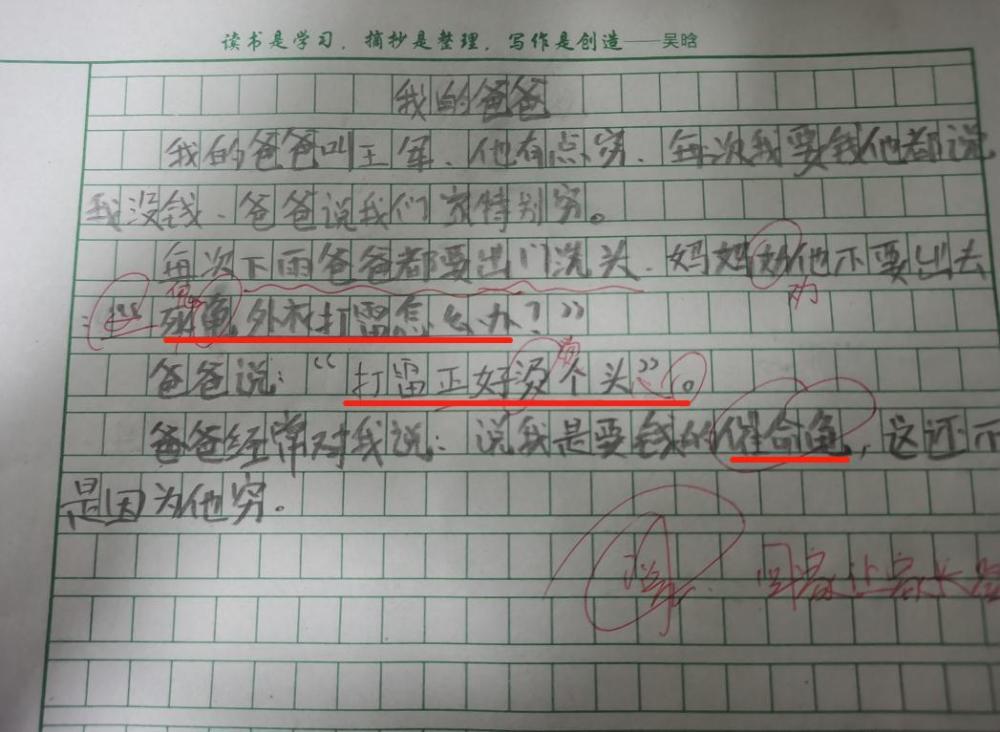 读书是学习，摘抄是整理，写作是创造——吴晗
我的爸爸
我的爸爸叫王军、他有点穷、每次我要钱他都说
我没钱、爸爸说我们家特别穷。
每次下雨爸爸都要出门洗头、妈妈 他不要出去
劝
：“死鬼外衬打雷怎么办？”
爸爸说：“打雷正好烫个头”。
爸爸经常对我说：说我是要钱的催命鬼，这还不
是因为他穷。
回家让家长